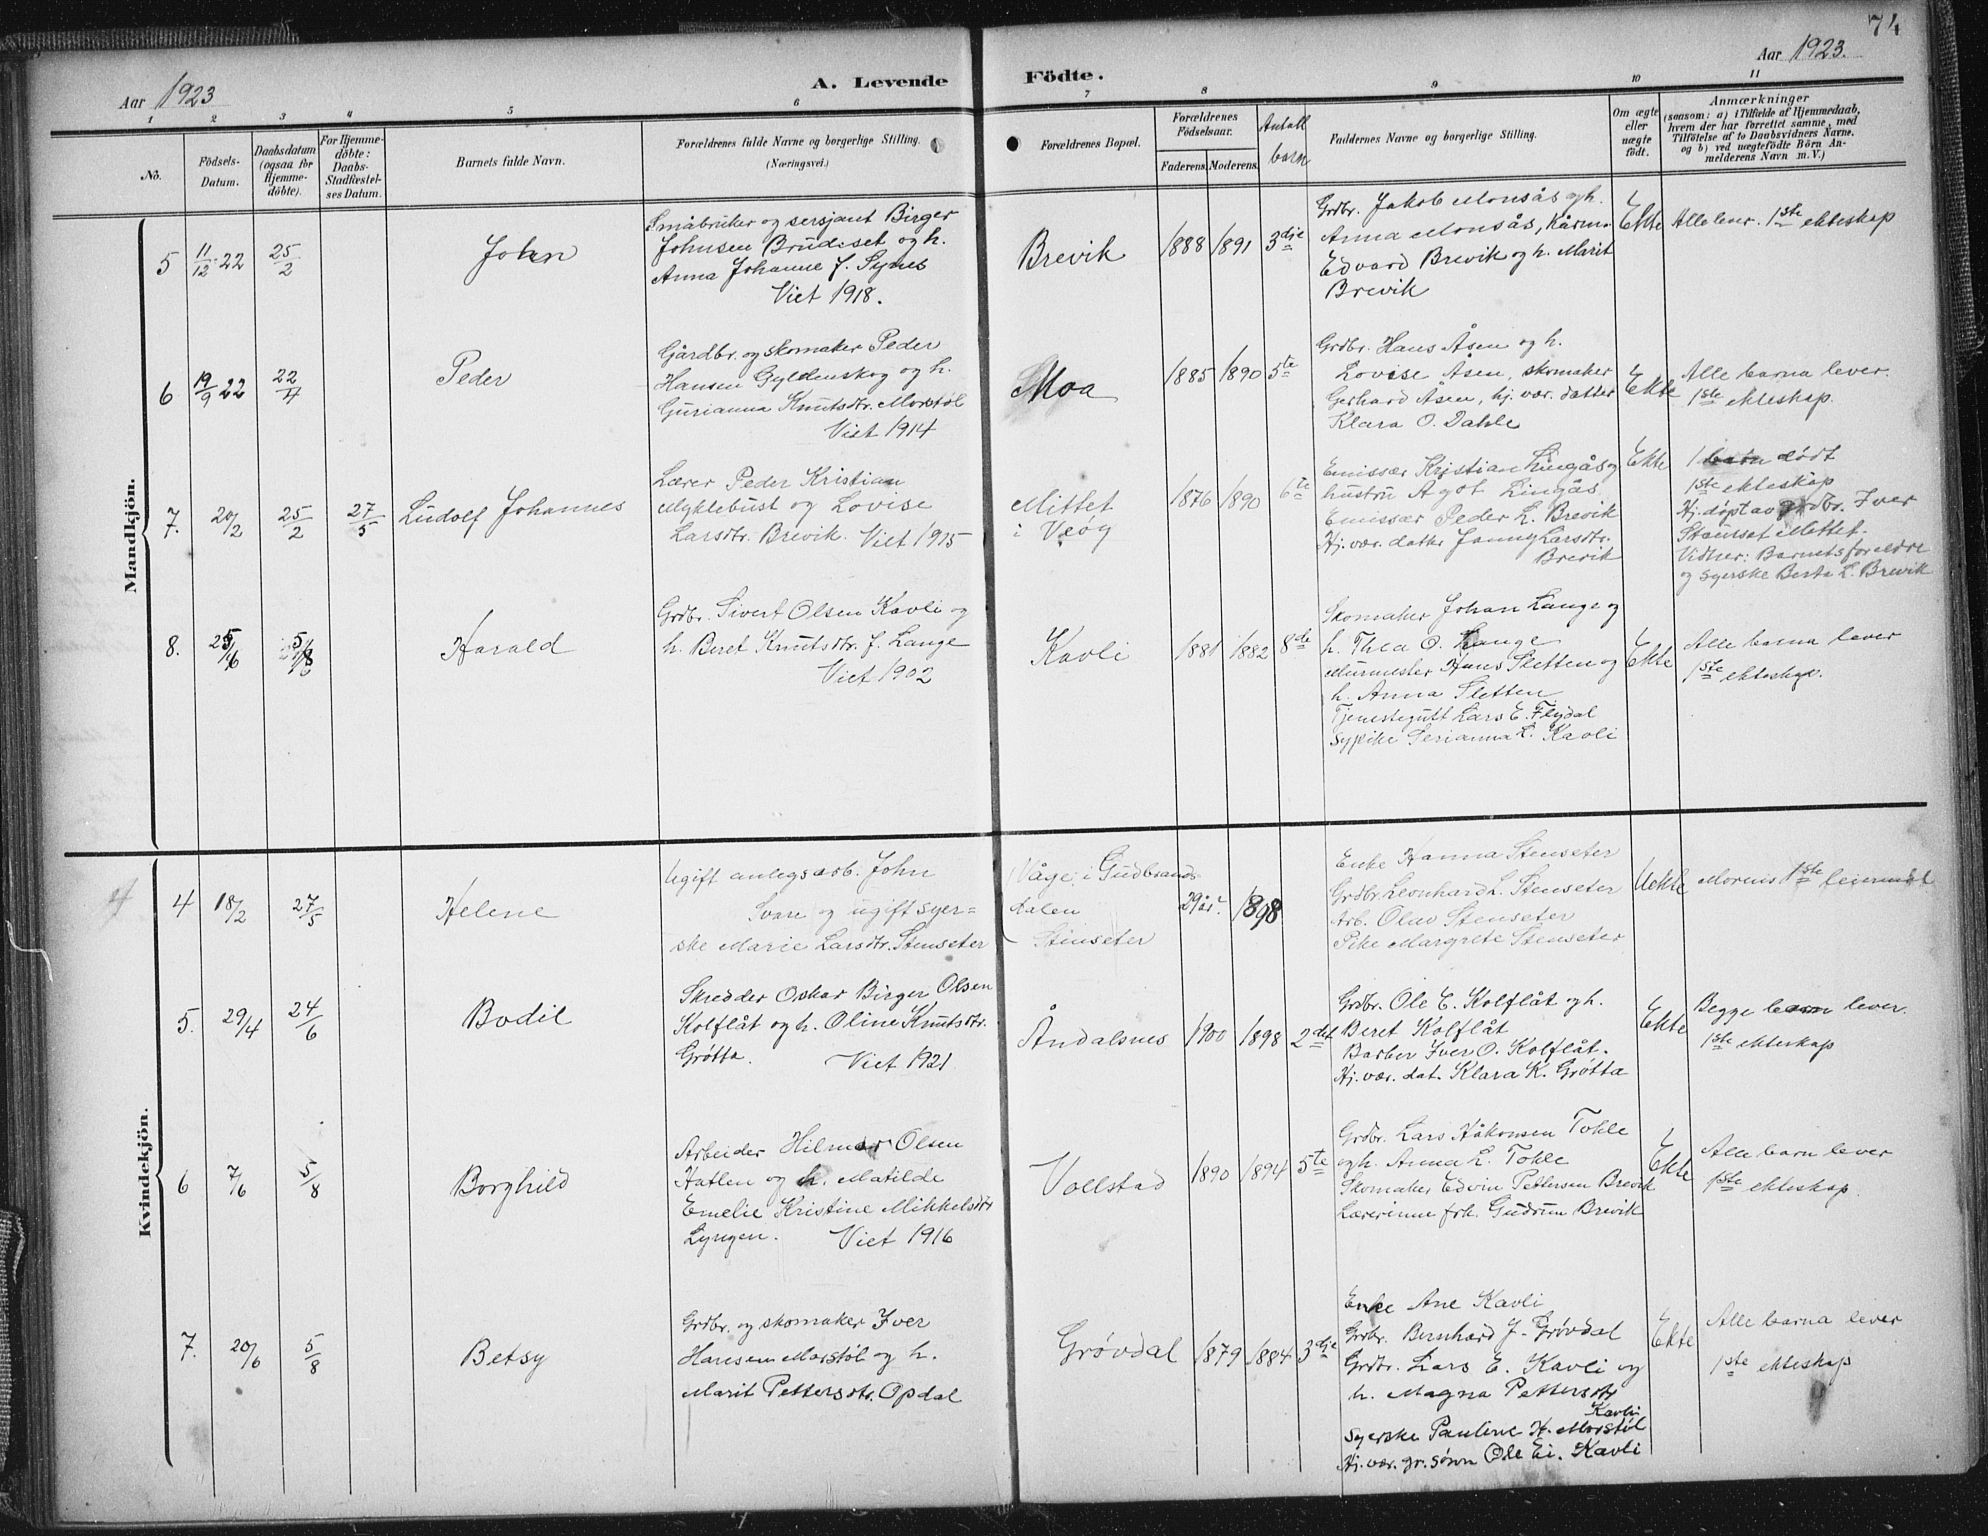 74
Aar 1923
A. Levende Födte.
Aar 1923.
1 2 3 4 5 6 7 8 9 10 11
No.
Födsels-
Datum.
Daabsdatum
(ogsaa for
Hjemme-
döbte).
For Hjemme-
döbte:
Daabs-
Stadfæstel-
ses Datum.
Barnets fulde Navn.
Forældrenes fulde Navne og borgerlige Stilling.
(Næringsvei.)
Forældrenes Bopæl.
Forældrenes
Födselsaar.
Faderens. Moderens.
Antall
barn
Faddernes Navne og borgerlige Stilling.
Om ægte
eller
uægte
födt.
Anmærkninger
(saasom: a) i Tilfælde af Hjemmedaab,
hvem der har forrettet samme, med
Tilföielse af to Daabsvidners Navne,
og b) ved uægtefödte Börn An-
melderens Navn m. V.)
Mandkjön.
5 11/12 22 25/2 John
Småbruker og sersjant Birger
Johnsen Brudeset og h.
Anna Johanne J. Synes
Viet 1918.
Brevik 1888 1891 3dje
Grdbr. Jakob Monsås og h.
Anna Monsås,
Edvard Brevik og h. Marit
Brevik
Ekte
Alle lever. 1ste ekteskap
6 19/9 22 22/4 Peder
Gårdbr. og skomaker Peder
Hansen Gyldenskog og h.
Gurianna Knutsdtr. Morstøl
Viet 1914
Moa 1885 1890 5te
Grdbr. Hans Åsen og h.
Lovise Åsen, skomaker
Gerhard Åsen, hj. vær. datter
Klara O. Dahle
Ekte
Alle barna lever.
1ste ekteskap.
7. 20/2 25/2 27/5 Ludolf Johannes
Lærer Peder Kristian
Myklebust og Lovise
Larsdtr. Brevik. Viet 1915
Mittet
i Veøy
1876 1890 6te
Emissær Kristian Lingås og
hustru Agot Lingås
Emissær Peder L. Brevik
Hj. vær. datter Jenny Larsdtr.
Brevik
Ekte
1 barn dødt
1ste ekteskap
Hj. døpt av grdbr. Iver
Mittet.
Vidner: Barnets foreldre
og syerske Berte L. Brevik
8. 25/6 5/8 Harald
Grdbr. Sivert Olsen Kavli og
h. Beret Knutsdtr. f. Lange
Viet 1902
Kavli 1881 1882 8de
Skomaker Johan Lange og
h. Thea O. Lange
Murmester Hans Sletten og
h. Anna Sletten
Tjenestegutt Lars E. Flydal
Sypike Serianna L. Kavli
Ekte
Alle barna lever
1ste ekteskap.
Kvindekjön.
4 4 18/2 27/5 Helene
Ugift anlegsarb. John
Svare og ugift syer-
ske Marie Larsdtr. Stenseter
Våge i Gudbrands-
dalen
Stenseter
29 år. 1898
Enke Hanna Stenseter
Grdbr. Leonhard L. Stenseter
Arb. Olav Stenseter
Pike Margrete Stenseter
Uekte
Morens 1ste leiermål
5. 29/4 24/6 Bodil
Skredder Oskar Birger Olsen
Kolflåt og h. Oline Knutsdtr.
Grøtta. Viet 1921
Åndalsnes 1900 1898 2det
Grdbr. Ole E. Kolflåt og h.
Beret Kolflåt
Barber Iver O. Kolflåt.
Hj. vær. dat. Klara K. Grøtta
Ekte
Begge barn lever.
1ste ekteskap
6 7/6 5/8 Borghild
Arbeider Hilmar Olsen
Hatlen og h. Matilde
Emelie Kristine Mikkelsdtr
Lyngen. Viet 1916
Vollstad 1890 1894 5te
Grdbr. Lars Håkonsen Tokle
og h. Anna L. Tokle
Skomaker Edvin Pettersen Brevik
Lærerinne frk. Gudrun Brevik
Ekte
Alle barn lever
1ste ekteskap.
7. 20/6 5/8 Betsy
Grdbr. og skomaker Iver
Hansen Morstøl og h.
Marit Pettersdtr. Opdal
Grøvdal 1879 1884 3dje
Enke Ane Kavli
Grdbr. Bernhard J. Grøvdal
Grdbr. Lars E. Kavli og
h. Magna Pettersdtr
Kavli
Syerske Pauline H. Morstøl
Hj. vær. gr. sønn Ole Ei. Kavli
Ekte
Alle barna lever
1ste ekteskap